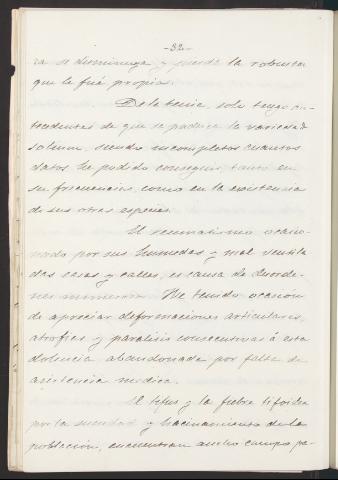 -32-
ra se disminuya y pierda la robustez
que le fué propia.
De la tenia, solo tengo an-
tecedentes de que se padece la variedad
solium, siendo incompletos cuantos
datos he podido conseguir, tanto en
su frecuencia, como en la existencia
de sus otras especies.
El reumatismo ocasio-
nado por sus humedas y mal ventila
das casas y calles, es causa de desorde-
nes numerosos. He tenido ocasión
de apreciar deformaciones articulares,
atrofias y parálisis consecutivas á esta
dolencia abandonada por falta de
asistencia médica.
El tifus y la fiebre tifoidea
por la suciedad y hacinamiento de la
población, encuentran ancho campo pa-